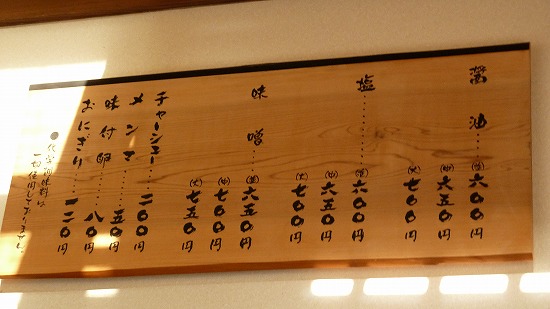 醤油……(並)六〇〇円
(中)六五〇円
(大)七〇〇円
塩……(並)六〇〇円
(中)六五〇円
(大)七〇〇円
味噌……(並)六五〇円
(中)七〇〇円
(大)七五〇円
チャーシュー……二〇〇円
メンマ……五〇円
味付卵……八〇円
おにぎり……一二〇円
●化学調味料は
一切使用しておりません。